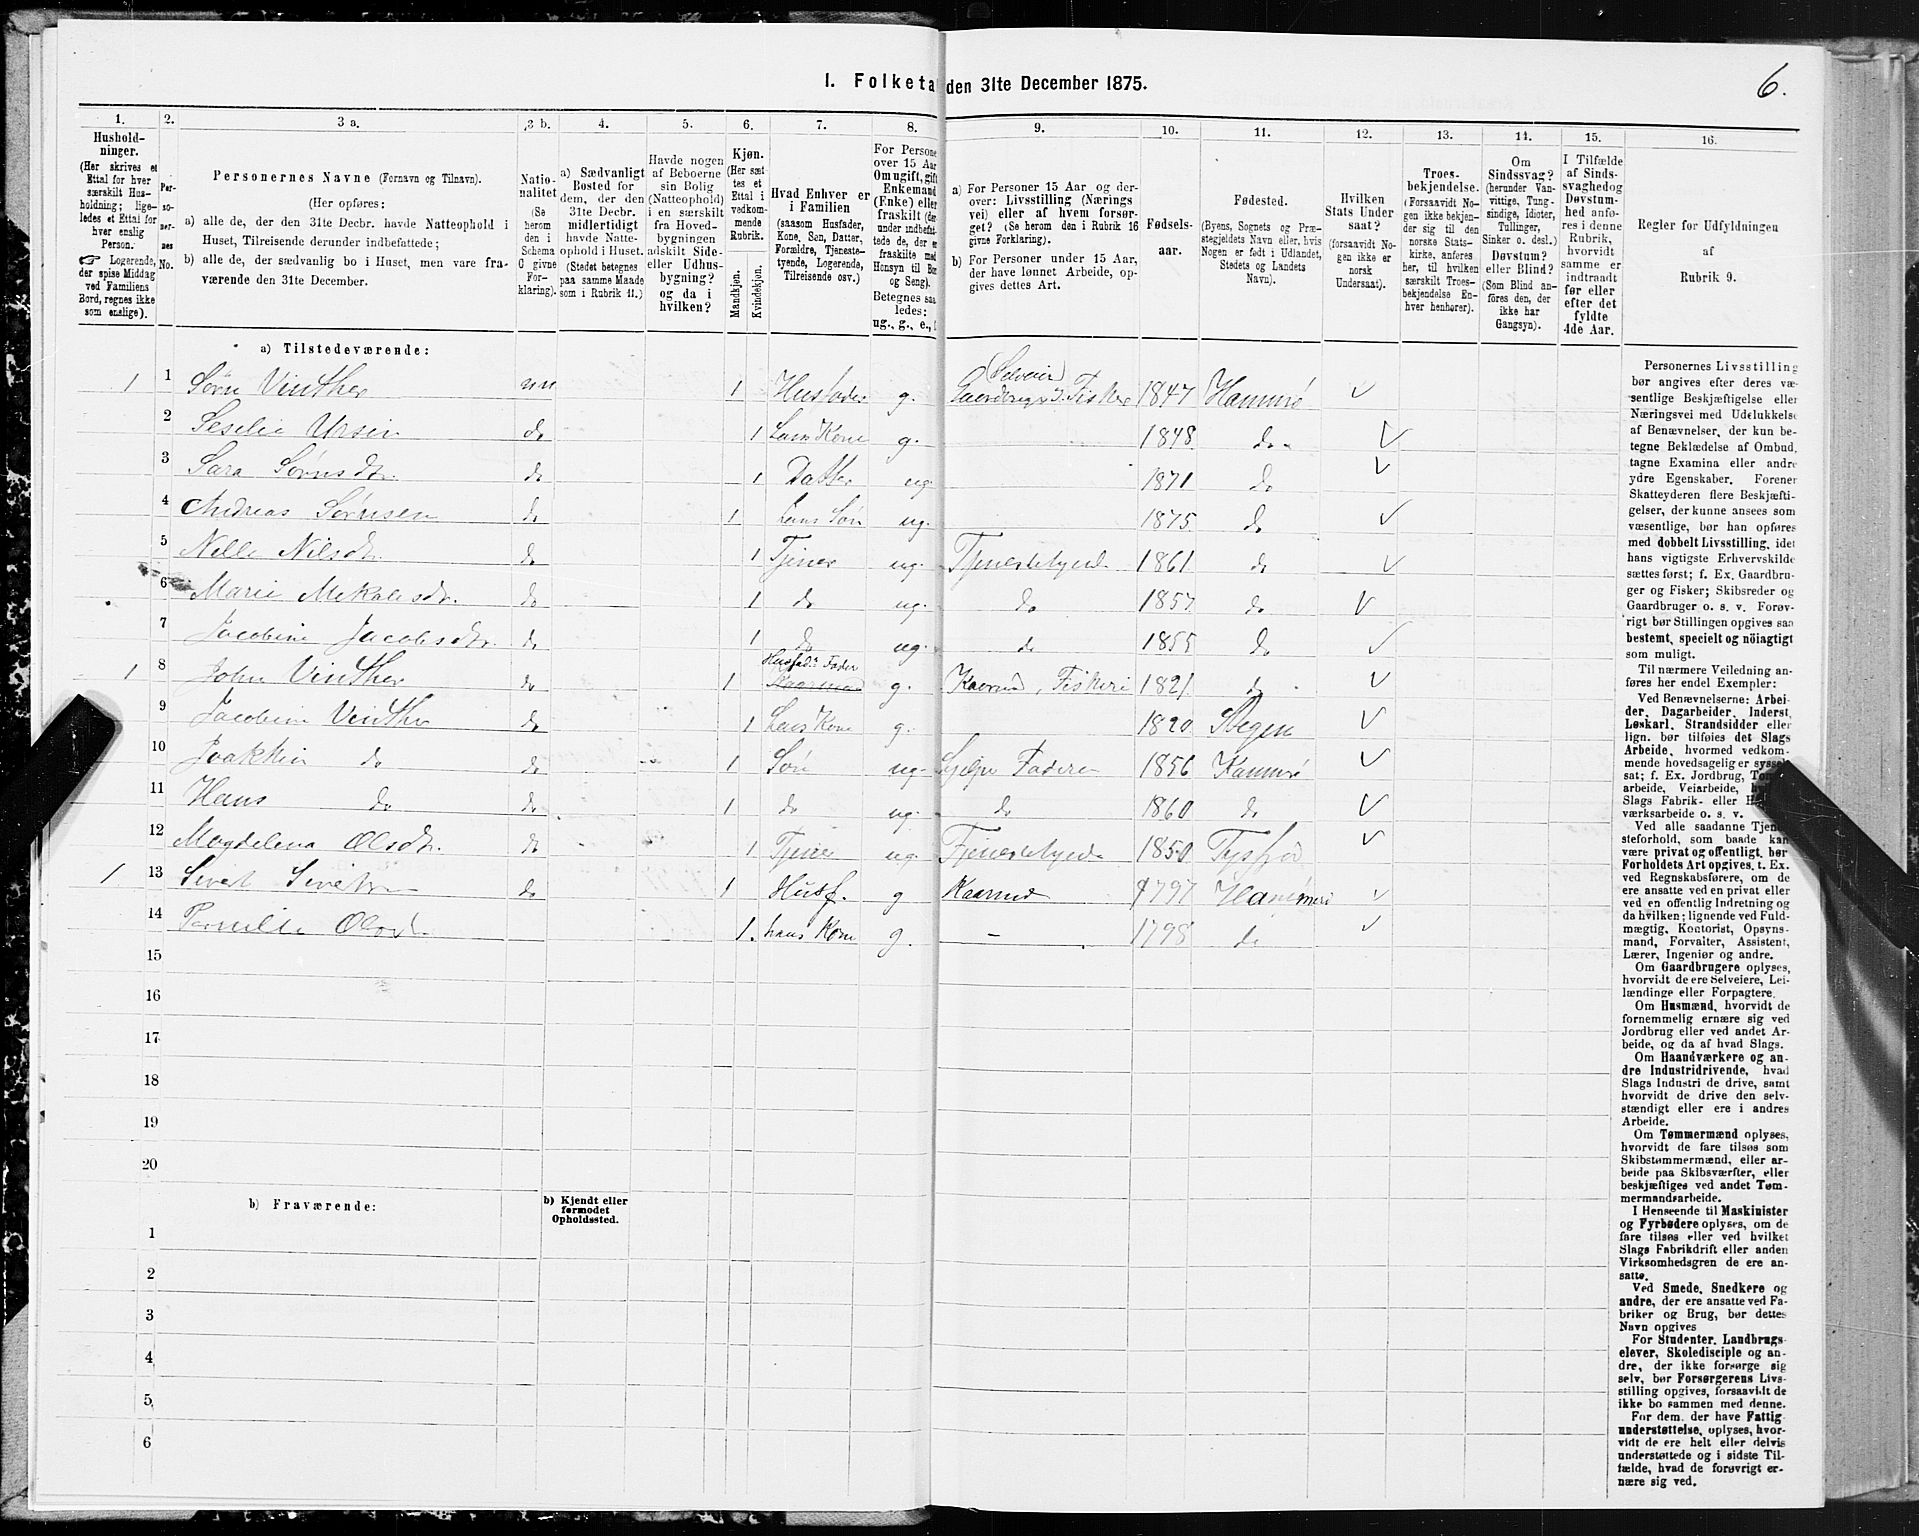 I. Folketa den 31te December 1875.
6.
1. 2. 3 a. 3 b. 4. 5. 6. 7. 8. 9. 10. 11. 12. 13. 14. 15. 16.
Hushold-
ninger.
(Her skrives et
Ettal for hver
særskilt Hus-
holdning; lige-
ledes et Ettal for
hver enslig
Person.
☞ Logerende,
der spise Middag
ved Familiens
Bord, regnes ikke
som enslige).
Per-
so-
ner-
nes
No.
Personernes Navne (Fornavn og Tilnavn).
(Her opføres:
a) alle de, der den 31te Decbr. havde Natteophold i
Huset, Tilreisende derunder indbefattede;
b) alle de, der sædvanlig bo i Huset, men vare fra-
værende den 31te December.
Natio-
nalitet
(Se
herom
den i
Schema
G givne
For-
klaring).
a) Sædvanligt
Bosted for
dem, der den
31te Decbr.
midlertidigt
havde Natte-
ophold i Huset.
(Stedet betegnes
paa samme Maade
som i Rubrik 11.)
Havde nogen
af Beboerne
sin Bolig
(Natteophold)
i en særskilt
fra Hoved-
bygningen
adskilt Side-
eller Udhus-
bygning?
og da i
hvilken?
Kjøn.
(Her sæt-
tes et
Ettal i
vedkom-
mende
Rubrik.
Mandkjøn.
Kvindekjøn.
Hvad Enhver er
i Familien
(saasom Husfader,
Kone, Søn, Datter,
Forældre, Tjeneste-
tyende, Logerende,
Tilreisende osv.)
For Persone
over 15 Aar
Om ugift, gift
Enkemand
(Enke) eller
fraskilt (der
under indbefat-
tede de, der er
fraskilte med
Hensyn til Bor
og Seng).
Betegnes saa
ledes:
ug., g., e., f.
a) For Personer 15 Aar og der-
over: Livsstilling (Nærings
vei) eller af hvem forsør-
get? (Se herom den i Rubrik 16
givne Forklaring).
b) For Personer under 15 Aar,
der have lønnet Arbeide, op-
gives dettes Art.
Fødsels-
aar.
Fødested.
(Byens, Sognets og Præ-
stegjeldets Navn eller, hvis
Nogen er født i Udlandet,
Stedets og Landets
Navn).
Hvilken
Stats Under
saat?
(forsaavidt No-
gen ikke er
norsk
Undersaat).
Troes-
bekjendelse.
(Forsaavidt No
gen ikke bekjen-
der sig til den
norske Stats-
kirke, anføres
her, til hvilken
særskilt Troes-
bekjendelse En-
hver henhører).
Om
Sindssvag?
(herunder Van-
vittige, Tung-
sindige, Idioter,
Tullinger,
Sinker o. desl.)
Døvstum?
eller Blind?
(Som Blind an-
føres den, der
ikke har
Gangsyn).
I Tilfælde
af Sinds-
svaghed og
Døvstum-
hed anfø-
res i denne
Rubrik,
hvorvidt
samme er
indtraadt
før eller
efter det
fyldte
4de Aar.
Regler for Udfyldningen
af
Rubrik 9.
a) Tilstedeværende:
1 1 Sørn Vinther nn 1 Husfader g. (Selveier) Gaardbruger, Fisker 1847 Hammrø ✓
2 Seselie Ursin do 1 hans Kone g. 1848 do ✓
3 Sara Sørnsdtr. do 1 Datter ug. 1871 do ✓
4 Andreas Sørnsen do 1 hans Søn ug. 1875 do ✓
5 Nelle Nilsdtr. do 1 Tjener ug. Tjenestetyende 1861 do ✓
6 Marie Mekalsdtr. do 1 do ug. do 1857 do ✓
7 Jacobine Jacobsdtr. do 1 do ug. do 1855 do ✓
1 8 John Vinther do 1 Husfad. Fader g. Kaarmd, Fiskeri 1821 do ✓
9 Jacobine Vinther do 1 hans Kone g. 1820 Stegen ✓
10 Joakkim do do 1 Søn ug. hjelper Faderen 1856 Hammrø ✓
11 Hans do do 1 do ug. do 1860 do ✓
12 Magdelena Olsdtr. do 1 Tjener ug. Tjenestetyende 1850 Tysfjord ✓
1 13 Sivert Sivertsen do 1 Husf. g Kaarmd 1797 Hammerø ✓
14 Pernille Olsdtr. 1. hans Kone g. – 1798 do ✓
15
16
17
18
19
20
b) Fraværende:
b) Kjendt eller
formodet
Opholdssted.
1
2
3
4
5
6
Personernes Livsstilling
bør angives efter deres væ-
sentlige Beskjæftigelse eller
Næringsvei med Udelukkelse
af Benævnelser, der kun be-
tegne Beklædelse af Ombud,
tagne Examina eller andre
ydre Egenskaber. Forener
Skatteyderen flere Beskjæfti-
gelser, der kunne ansees som
væsentlige, bør han opføres
med dobbelt Livsstilling, idet
hans vigtigste Erhvervskilde
sættes først; f. Ex. Gaardbru-
ger og Fisker; Skibsreder og
Gaardbruger o. s. v. Forøv-
rigt bør Stillingen opgives saa
bestemt, specielt og nöiagtigt
som muligt.
Til nærmere Veiledning an-
føres her endel Exempler:
Ved Benævnelserne: Arbei-
der, Dagarbeider, Inderst,
Løskarl, Strandsidder eller
lign. bør tilføies det Slags
Arbeide, hvormed vedkom-
mende hovedsagelig er syssel-
sat; f. Ex. Jordbrug, Tom
arbeide, Veiarbeide,
Slags Fabrik- eller H
værksarbeide o. s. v.
Ved alle saadanne Tjene-
steforhold, som baade kan
være privat og offentligt, bør
Forholdets Art opgives, t. Ex.
ved Regnskabsførere, om de
ere ansatte ved en privat eller
ved en offentlig Indretning og
da hvilken; lignende ved Fuld-
mægtig, Kontorist, Opsyns-
mand, Forvalter, Assistent,
Lærer, Ingeniør og andre.
Om Gaardbrugere oplyses,
hvorvidt de ere Selveiere, Lei-
lændinge eller Forpagtere.
Om Husmænd, hvorvidt de
fornemmelig ernære sig ved
Jordbrug eller ved andet Ar-
beide, og da af hvad Slags.
Om Haandværkere og an-
dre Industridrivende, hvad
Slags Industri de drive, samt
hvorvidt de drive den selv-
stændigt eller ere i andres
Arbeide.
Om Tømmermænd oplyses,
hvorvidt de fare tilsøs som
Skibstømmermænd, eller ar-
beide paa Skibsværfter, eller
beskjæftiges ved andet Tøm-
mermandsarbeide.
I Henseende til Maskinister
og Fyrbødere oplyses, om de
fare tilsøs eller ved hvilket
Slags Fabrikdrift eller anden
Virksomhedsgren de ere an-
satte.
Ved Smede, Snedkere og
andre, der ere ansatte ved Fa-
briker og Brug, bør dettes
Navn opgives
For Studenter, Landbrugs-
elever, Skoledisciple og an-
dre, der ikke forsørge sig
selv, bør Forsørgerens Livs-
stilling opgives, forsaavidt de
ikke bo sammen med denne.
For dem, der have Fattig-
understøttelse, oplyses, hvor-
vidt de ere helt eller delvis
understøttede og i sidste Til-
fælde, hvad de forøvrigt er-
nære sig ved.